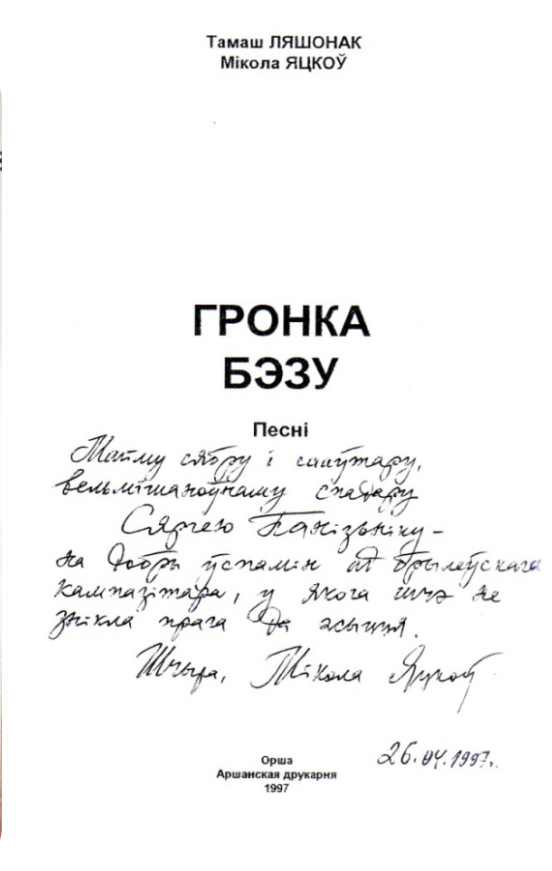 Тамаш ЛЯШОНАК
Мікола ЯЦКОЎ
ГРОНКА
БЭЗУ
Песні
Майму сябру і сааўтару,
вельмішаноўнаму спадару
Сяргею Панізьніку –
на добры ўспамін ад
кампазітара, у якога шчэ не
знікла прага да
Шчыра, Мікола Яцкоў
26.04.1997г.
Орша
Аршанская друкарня
1997